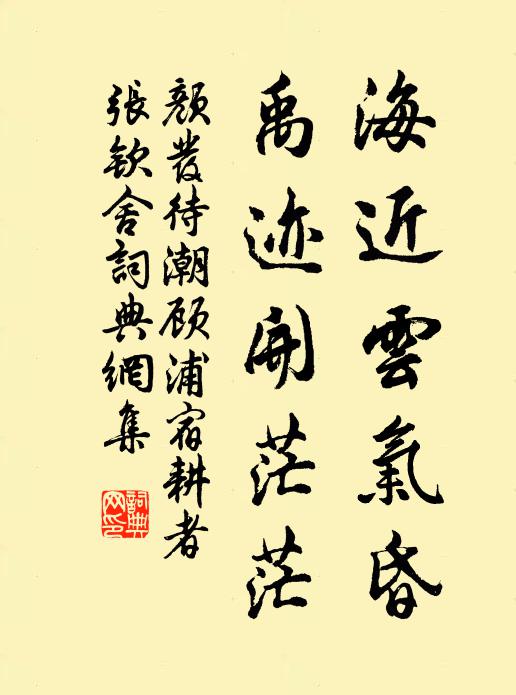 海近雲氣昏
禹迹開茫茫
顏發待潮顧浦宿耕者
張欽舍詞典網集
詞典网印